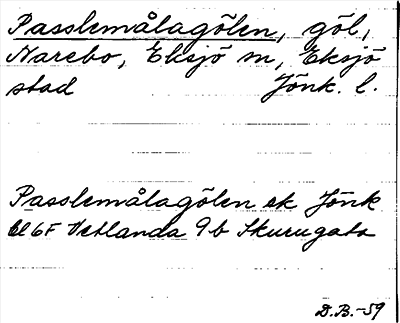 Passlemålagölen, göl,
Narebo, Eksjö m, Eksjö
stad Jönk. l.
Passlemålagölen ek Jönk
6F Vetlanda 9b Skurugata
D.B.-59